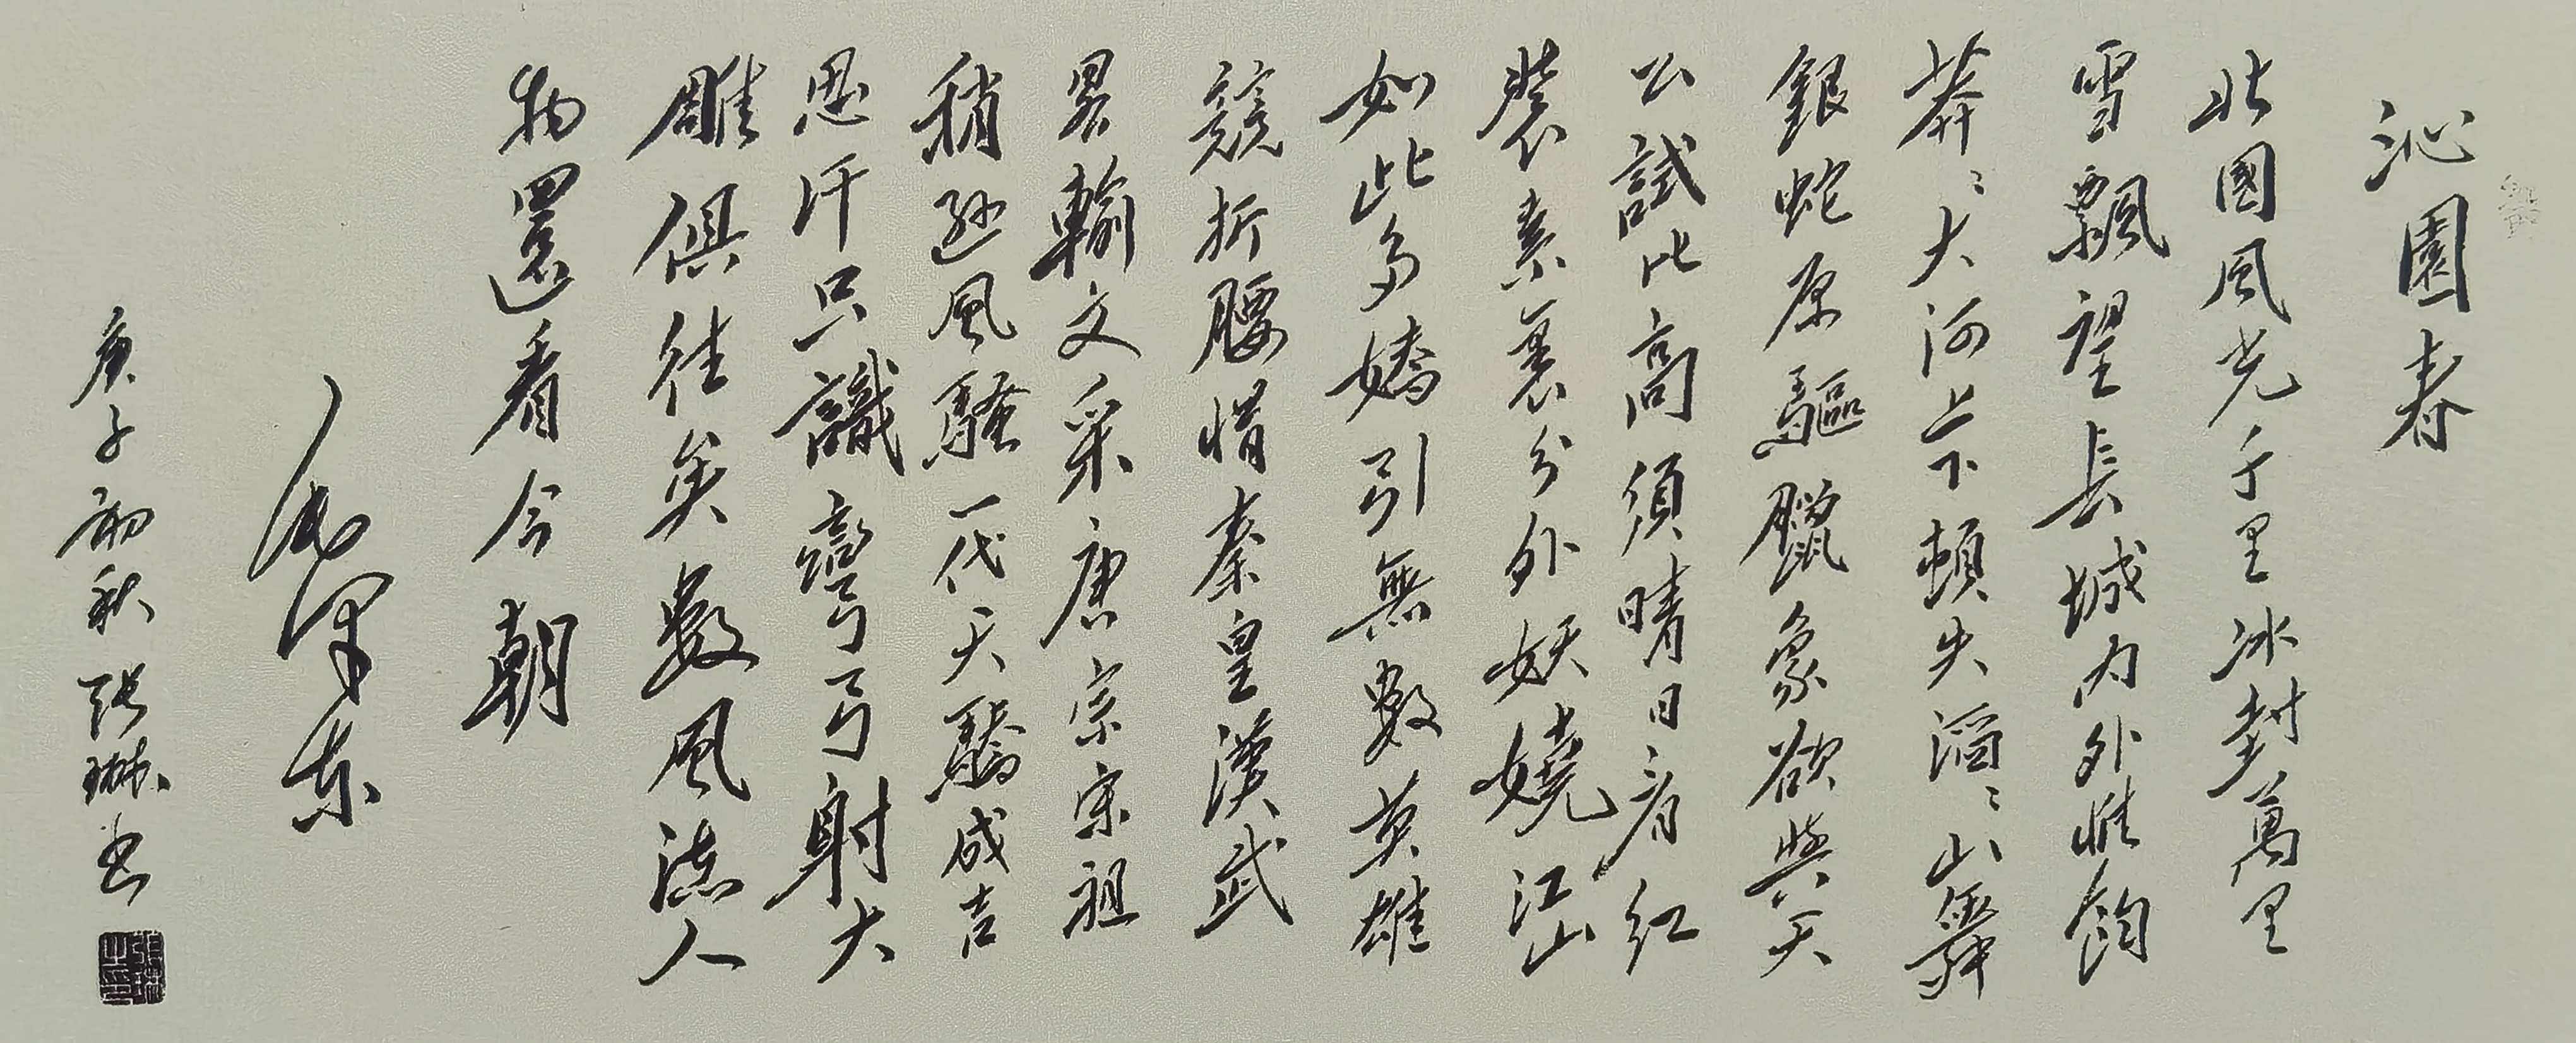 沁園春
北國風光千里冰封萬里
雪飄望長城內外惟餘
莽〻大河上下頓失滔〻山舞
銀蛇原驅臘象欲與天
公試比高須晴日看紅
裝素裹分外妖嬈江山
如此多嬌引無數英雄
競折腰惜秦皇漢武
畧輸文采唐宗宋祖
稍遜風騷一代天驕成吉
思汗只識彎弓射大
雕俱往矣數風流人
物還看今朝
毛澤東
庚子初秋張琳書